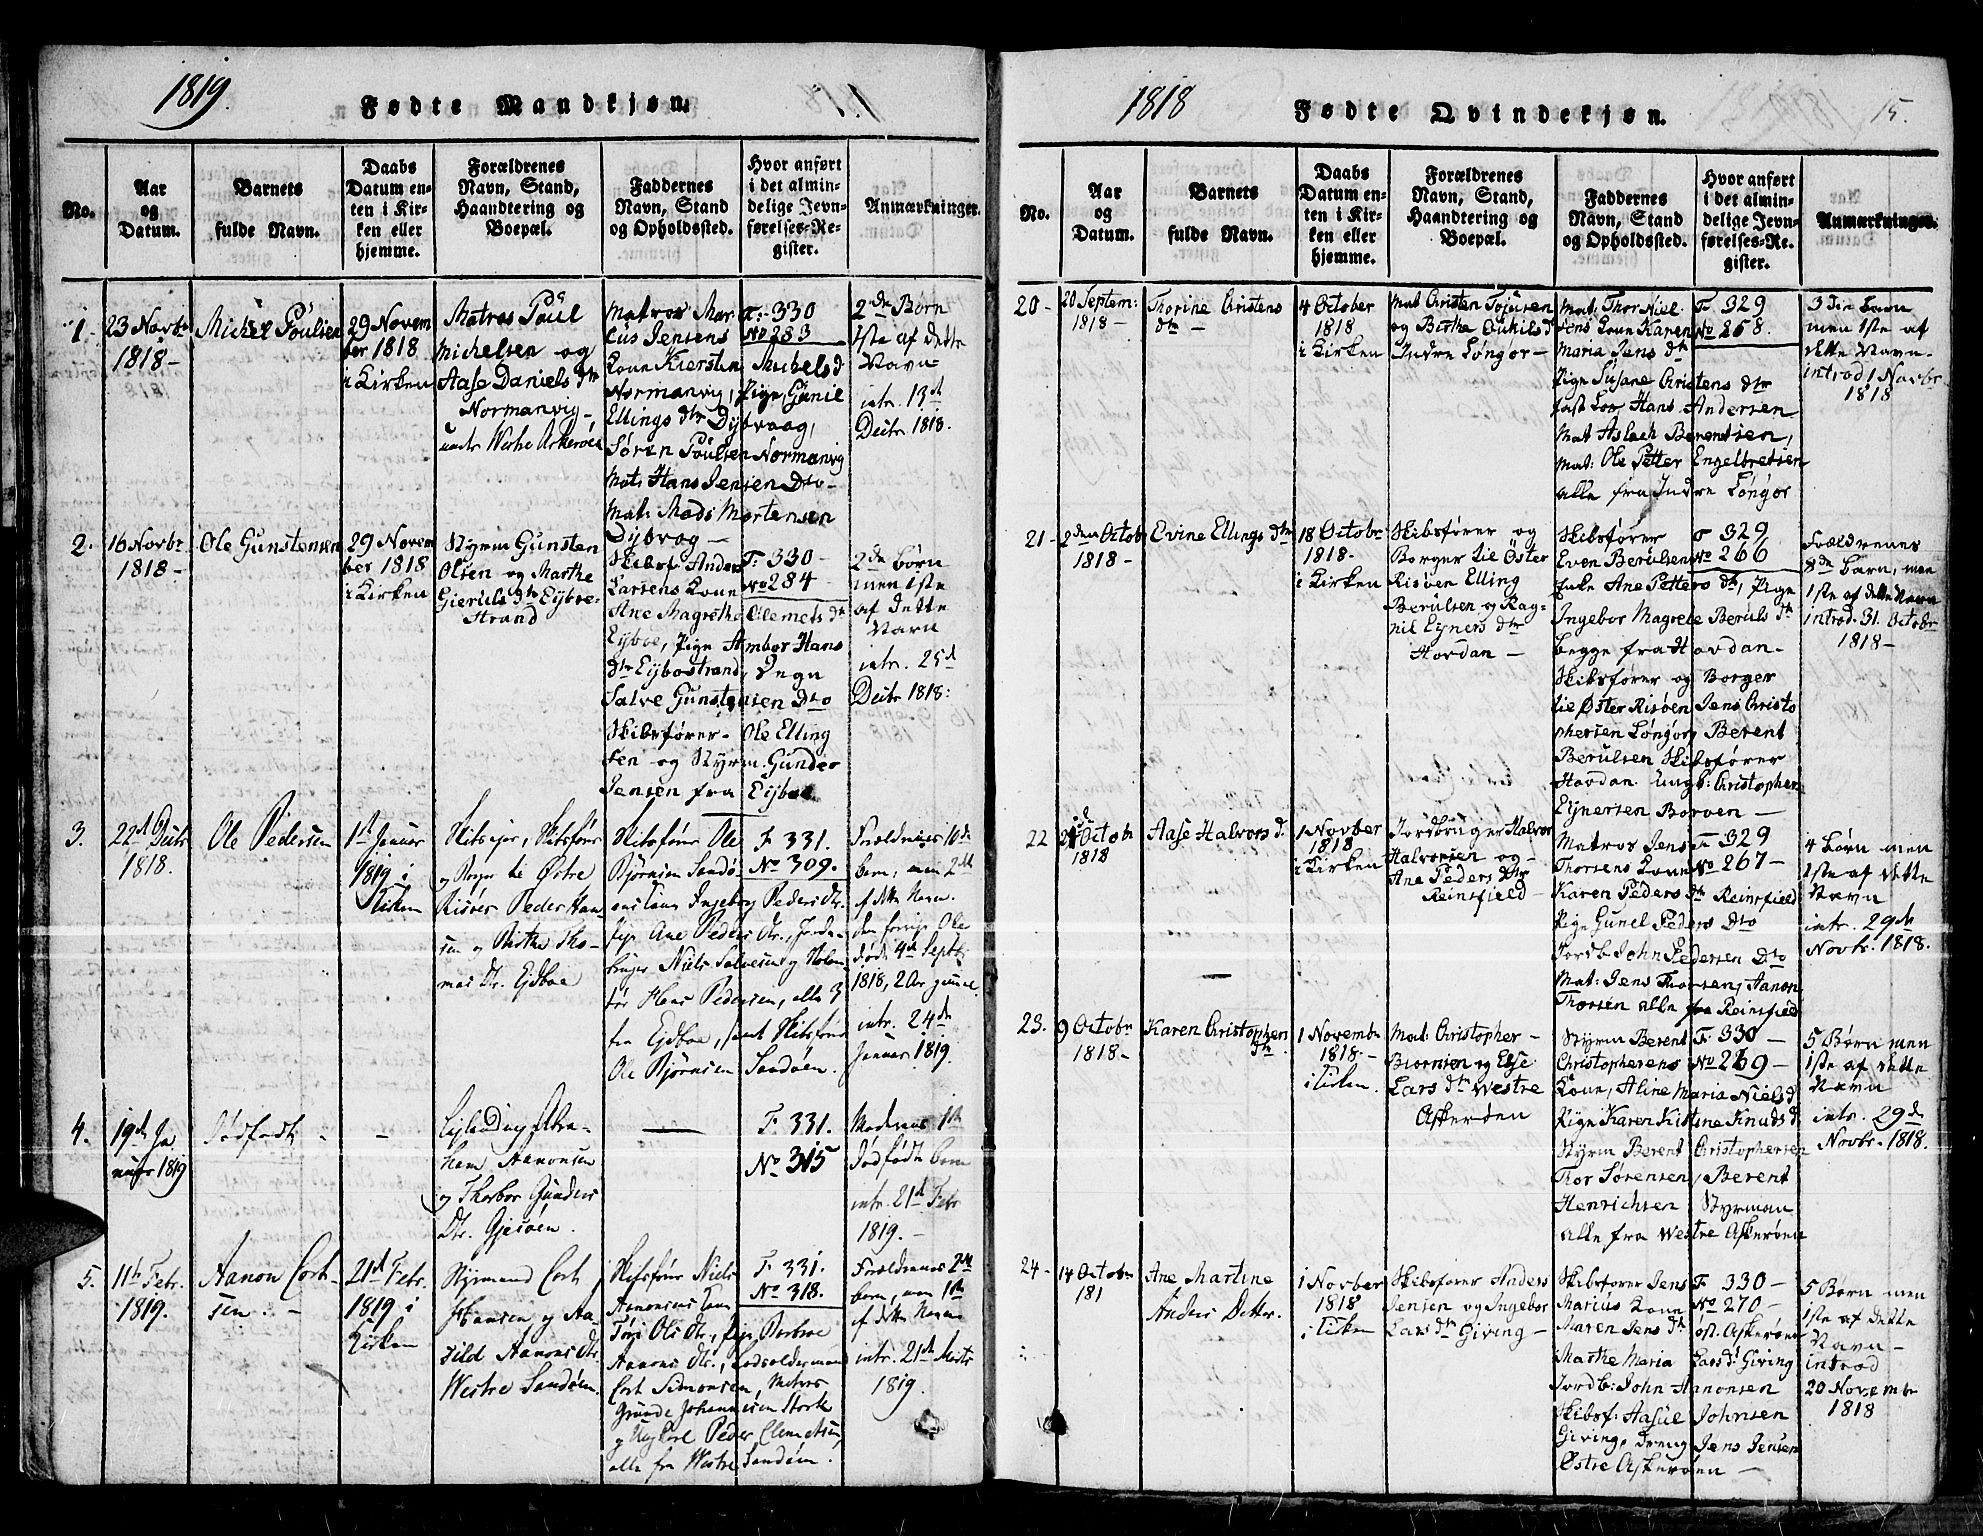 1819.
Fødte Mandkjøn.
No.
Aar
og
Datum.
Barnets
fulde Navn.
Daabs
Datum en-
ten i Kir-
ken eller
hjemme.
Forældrenes
Navn, Stand,
Haandtering og
Boepæl.
Faddernes
Navn, Stand
og Opholdssted.
Hvor anført
i det almin-
delige Jevn-
førelses-Re-
gister.
Anmærkninger.
1.
23 Novbr
1818-
Michel Poulsen
29 Novem
ber 1818
i Kirken
Matros Poul
Michelsen og
Aase Daniels dtr
Normanvig-
Matros Mar-
cus Jensens
Kone Kiersten Michels d
Normanvig, Pige Gunil
Ellings dtr Dybvaag,
Søren Poulsen Normanvig
Mat: Hans Jensen Dto-
Mat: Mads Mortensen
Dybvog-
F: 330
No 283
2de Børn
1ste af dette
Navn
intr. 13d
Decbr 1818.
2.
16 Novbr
1818-
Ole Gunstensen
29 Novem
ber 1818
i Kirken
Styrm Gunsten
Olsen og Marthe
Gieruls dtr Eyboe-
Strand
Skibsf Anders
Larsens Kone
Ane Magretha Clemets dtr
Eyboe, Pige Ambor Hans
dtr Eybostrand, Degn
Salve Gunstensen Dto
Skibsfører- Ole Elling
sen og Styrm. Gunder
Jensen fra Eyboe
F: 330-
No 284-
2de Børn
men 1ste
af dette
Navn
intr. 25d
Decbr 1818:
3.
22d Decbr
1818.
Ole Pedersen
1st Januar
1819 i
Kirken
og Borger til Østre
Risøer Peder Han-
sen og Birthe Tho-
mas Dtr. Eydboe
Skibsfører Ole
Bjørnsen Sandø-
ens Kone Ingeborg Peders Dtr.
Pige Ane Peders Dtr., Jordb-
bruger Niels Salvesen og
Hans Pedersen, alle 3
fra Eydboe, samt Skibsfører
Ole Bjørnsen Sandøen.
F 331.
No 309.
Forældrenes 10de
Barn, men 2det
af dette Navn.
den forrige Ole
døde 4d Septb
1818, 2 Aar gammel.
intr. 24de
Januar 1819.
4.
19de Ja
nuar 1819
Dødfødt -
-
Abra-
ham Aanonsen
og Thorbor Gunders
Dtr. Gjesøen.
F. 331.
No 315
Moderens 1ste
Dødfødte Barn
intr. 21d Febr
1819.-
5.
11te Febr.
1819.
Aanon Cort-
sen. -
21d Febr.
1819 i
Kirken
Styrmand Cort
Hansen og Aa-
sild Aanons Dtr.
Westre Sandøen.
Skibsfører Niels
Aanonsens Kone
Ols Dtr., Pige Barbroe
Aanons Dtr., Lodsolderman
Cort Simonsen, Matros
Gunde Johannesen Stork
og Ungkarl Peder Clemetsen
alle fra Westre Sandøen.
F. 331.
No 318.
Forældrenes 2det
Barn, men 1ste
af dette Navn
intr. 21de Marts
1819.
1818
Fødte Qvindekjøn.
15.
No.
Aar
og
Datum.
Barnets
fulde Navn.
Daabs
Datum en-
ten i Kir-
ken eller
hjemme.
Forældrenes
Navn, Stand,
Haandtering og
Boepæl.
Faddernes
Navn, Stand
og Opholdssted.
Hvor anført
i det almin-
delige Jevn-
førelses-Re-
gister.
Anmærkninger.
20-
20 Septem:
1818-
Thorine Cristens
dtr -
4 October
1818
i Kirken
Mat Christen Tojusen
og Birthe Oukils d
Indre Løngør-
Mat: Thor Niel
sens Kone Karen
Maria Jens dtr
Pige Susane Christens dtr
Hans Andersen
Mat Aslach Berentsen,
Mat: Ole Petter Engelbretsen
alle fra Indre Løngør
F 329
No 258.
3die Barn
men 1ste af
dette Navn-
introd 1 Novbr
1818
21-
2den Octob
1818-
Evine Ellings dtr
18 Octobr
1818-
i Kirken
Skibsfører og
Borger til Øster
Risøen Elling
Berulsen og Rag-
nil Eyners dtr
Hovdan-
Skibsfører
Even Berulsen
Enke Ane Petters dtr, Pige
Ingebor Magrete Beruls dtr
begge fra Hovdan-
Skibsfører og Borger
til Øster Risøen Jens Christo
phersen Løngør, Berent
Berulsen Skibsfører
Hovdan ungk: Christopher
Eynersen Borven-
F 329
No 266
Forældrenes
8de Barn, men
1ste af dette Navn
introd. 31. Octobr
1818-
22
Octob
1818
Aase Halvors d.
1 Novber
1818
i Kirken
Jordbruger Halvor
Halvorsen og-
Ane Peders dtr
Reinsfield-
Matros Jens
Thorsens Kone
Karen Peders dtr Reinsfield
Pige Gunel Peders Dto
Jordb John Pedersen Dto
Mat: Jens Thorsen, Aanon
Thorsen alle fra Reinsfield
F 329
No 267-
4 Børn men
1ste af dette
Navn
intr. 29de
Novbr. 1818.
23.
9 Octobr
1818-
Karen Christophers
dtr
1 Novembr
1818-
i Kirken.
Mat: Christopher-
Biørnsen og Else
Lars dtr Westre
Askerøen
Styrm Berent
Christophersens
Kone, Aline Maria Niels d
Pige Karen Kistine Knuds d
Styrm Berent Christophersen
Tor Sørensen, Berent
Henrichsen Styrman
alle fra Westre Askerøen
F: 330-
No 269-
5 Børn men
1ste af dette
Navn
intr. 29de
Novbr. 1818.
24-
14 Octobr
181
Ane Martine
Anders Datter.
1 Novber
1818
i Kirken
Skibsfører Anders
Jensen og Ingebor
Lars dtr Giving-
Skibsfører Jens
Marius Kone
Maren Jens dtr
Marthe Maria Lars d Giving
Jordb: John Aanonsen
Skibsf: Aasul Johnsen
Giving, Dreng Jens Jensen
Østre Askerøen-
F 330-
No 270-
øst. Askerøen
5 Børn men
1ste af dette
Navn-
introd
20 Novembr
1818